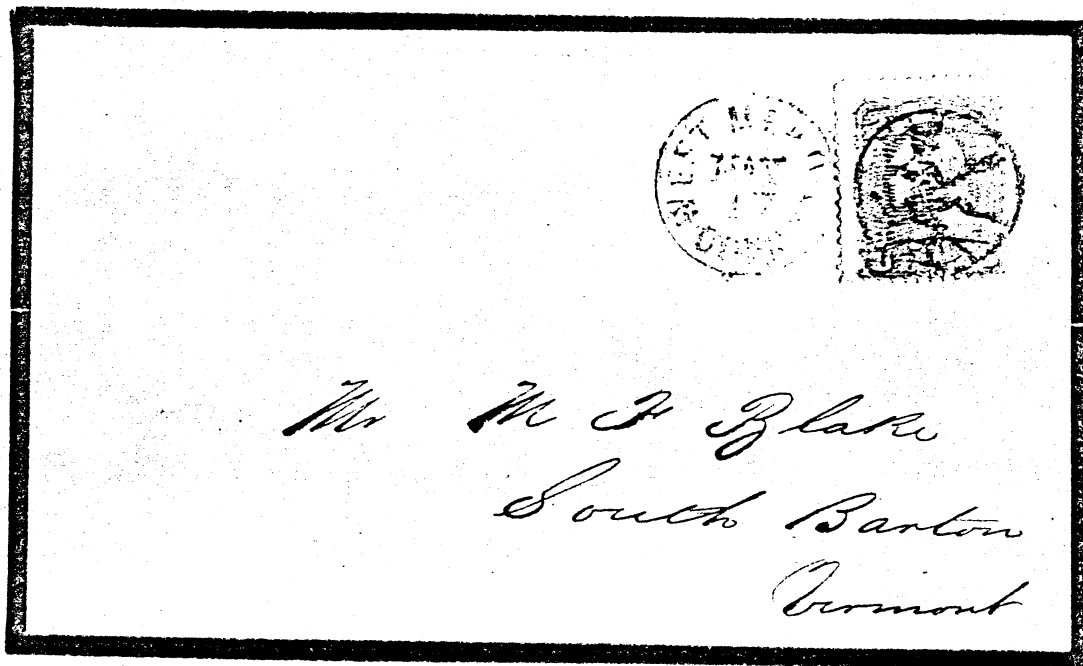 WEST
Mr M F Blake
South Barton
Vermont